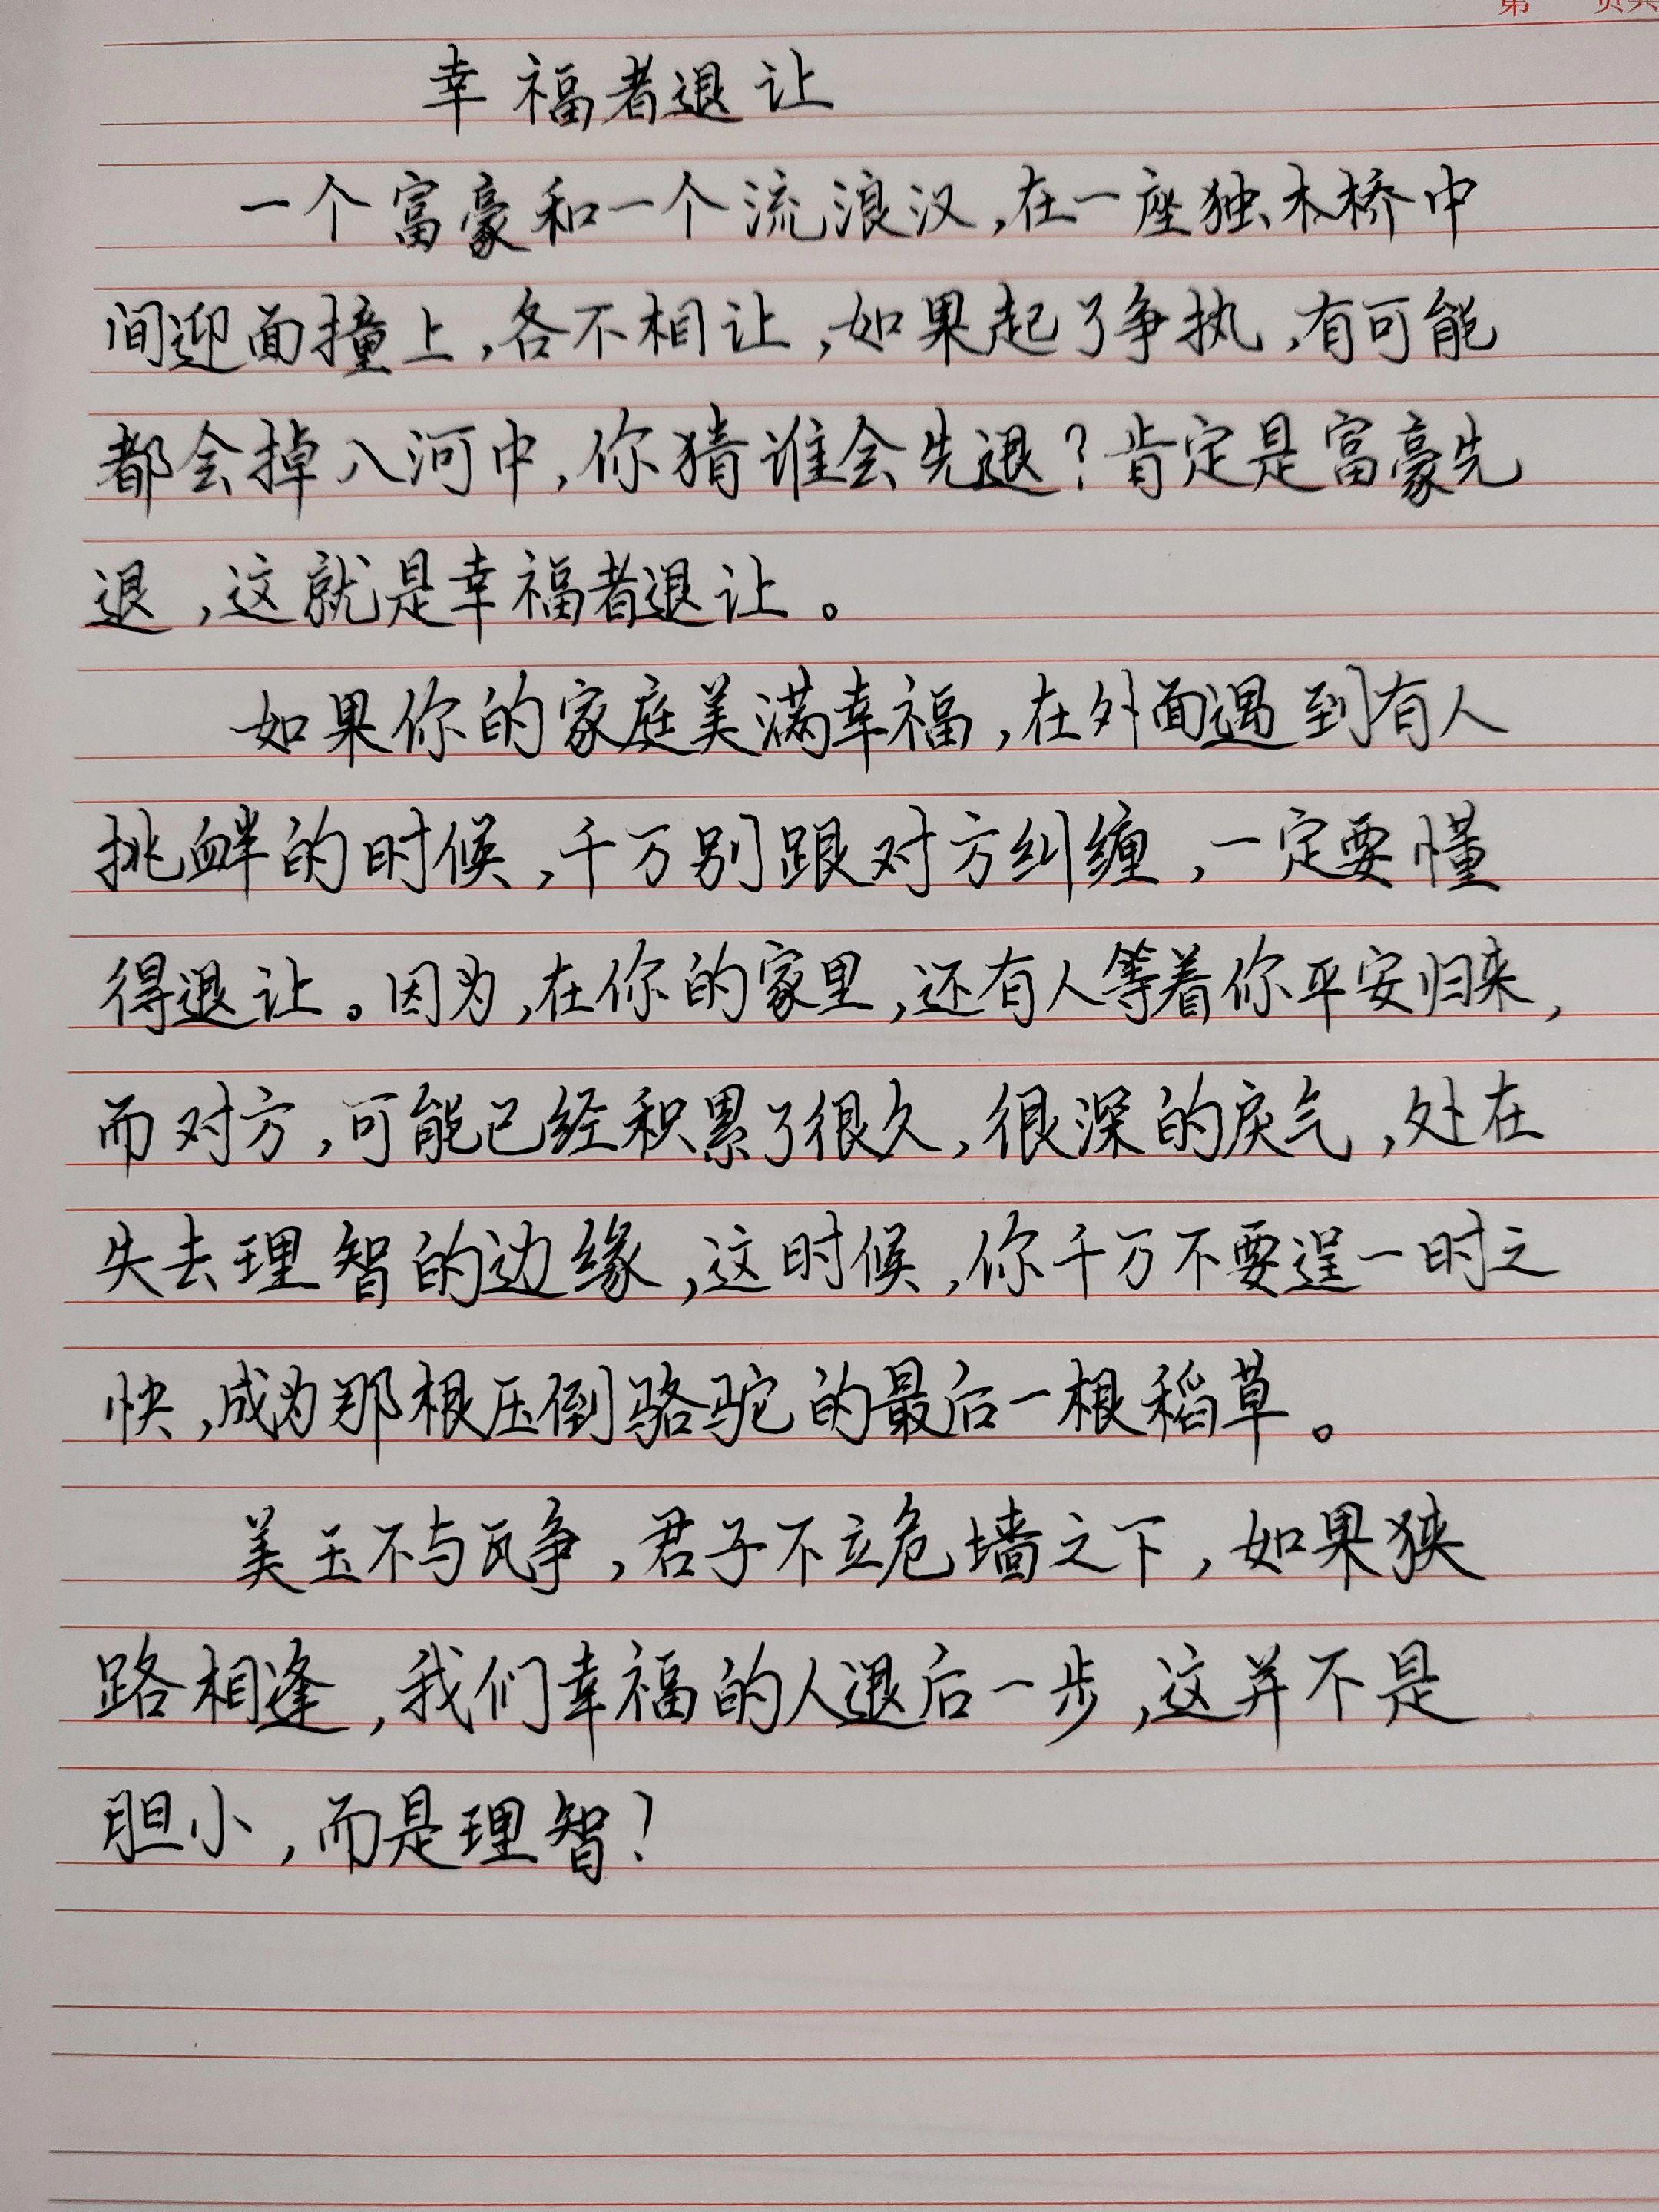 第 页共
幸福者退让
一个富豪和一个流浪汉,在一座独木桥中
间迎面撞上,各不相让,如果起了争执,有可能
都会掉入河中,你猜谁会先退?肯定是富豪先
退,这就是幸福者退让。
如果你的家庭美满幸福,在外面遇到有人
挑衅的时候,千万别跟对方纠缠,一定要懂
得退让。因为,在你的家里,还有人等着你平安归来,
而对方,可能已经积累了很久,很深的戾气,处在
失去理智的边缘,这时候,你千万不要逞一时之
快,成为那根压倒骆驼的最后一根稻草。
美玉不与瓦争,君子不立危墙之下,如果狭
路相逢,我们幸福的人退后一步,这并不是
胆小,而是理智!